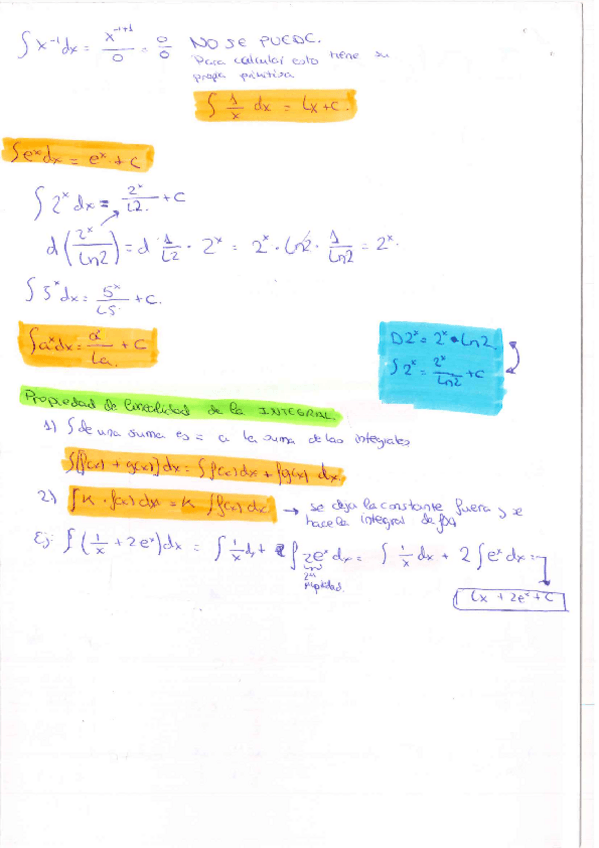 ∫ x⁻¹ dx = x⁻¹⁺¹/0 = 0/0 NO SE PUEDE.
Para calcular esto tiene su
propia primitiva
∫ 1/x dx = Lx + C.
∫ eˣ dx = eˣ + C
∫ 2ˣ dx = 2ˣ/L2. + C
d (2ˣ/Ln2) = d · 1/L2 · 2ˣ = 2ˣ · Ln2 · 1/Ln2 = 2ˣ.
∫ 5ˣ dx = 5ˣ/L5 + C.
∫ aˣ dx = aˣ/La. + C
D 2ˣ = 2ˣ • Ln2.
∫ 2ˣ = 2ˣ/Ln2 + C
Propiedad de linealidad de la INTEGRAL.
1) ∫ de una suma es = a la suma de las integrales
∫ [f(x) + g(x)] dx = ∫ f(x) dx + ∫ g(x) dx.
2) ∫ K · f(x) dx = K ∫ f(x) dx → se deja la constante fuera y se
hace la integral de f(x)
Ej: ∫ (1/x + 2eˣ) dx = ∫ 1/x dx + ∫ 2eˣ dx = ∫ 1/x dx + 2 ∫ eˣ dx =
2ª
propiedad.
Lx + 2eˣ + C